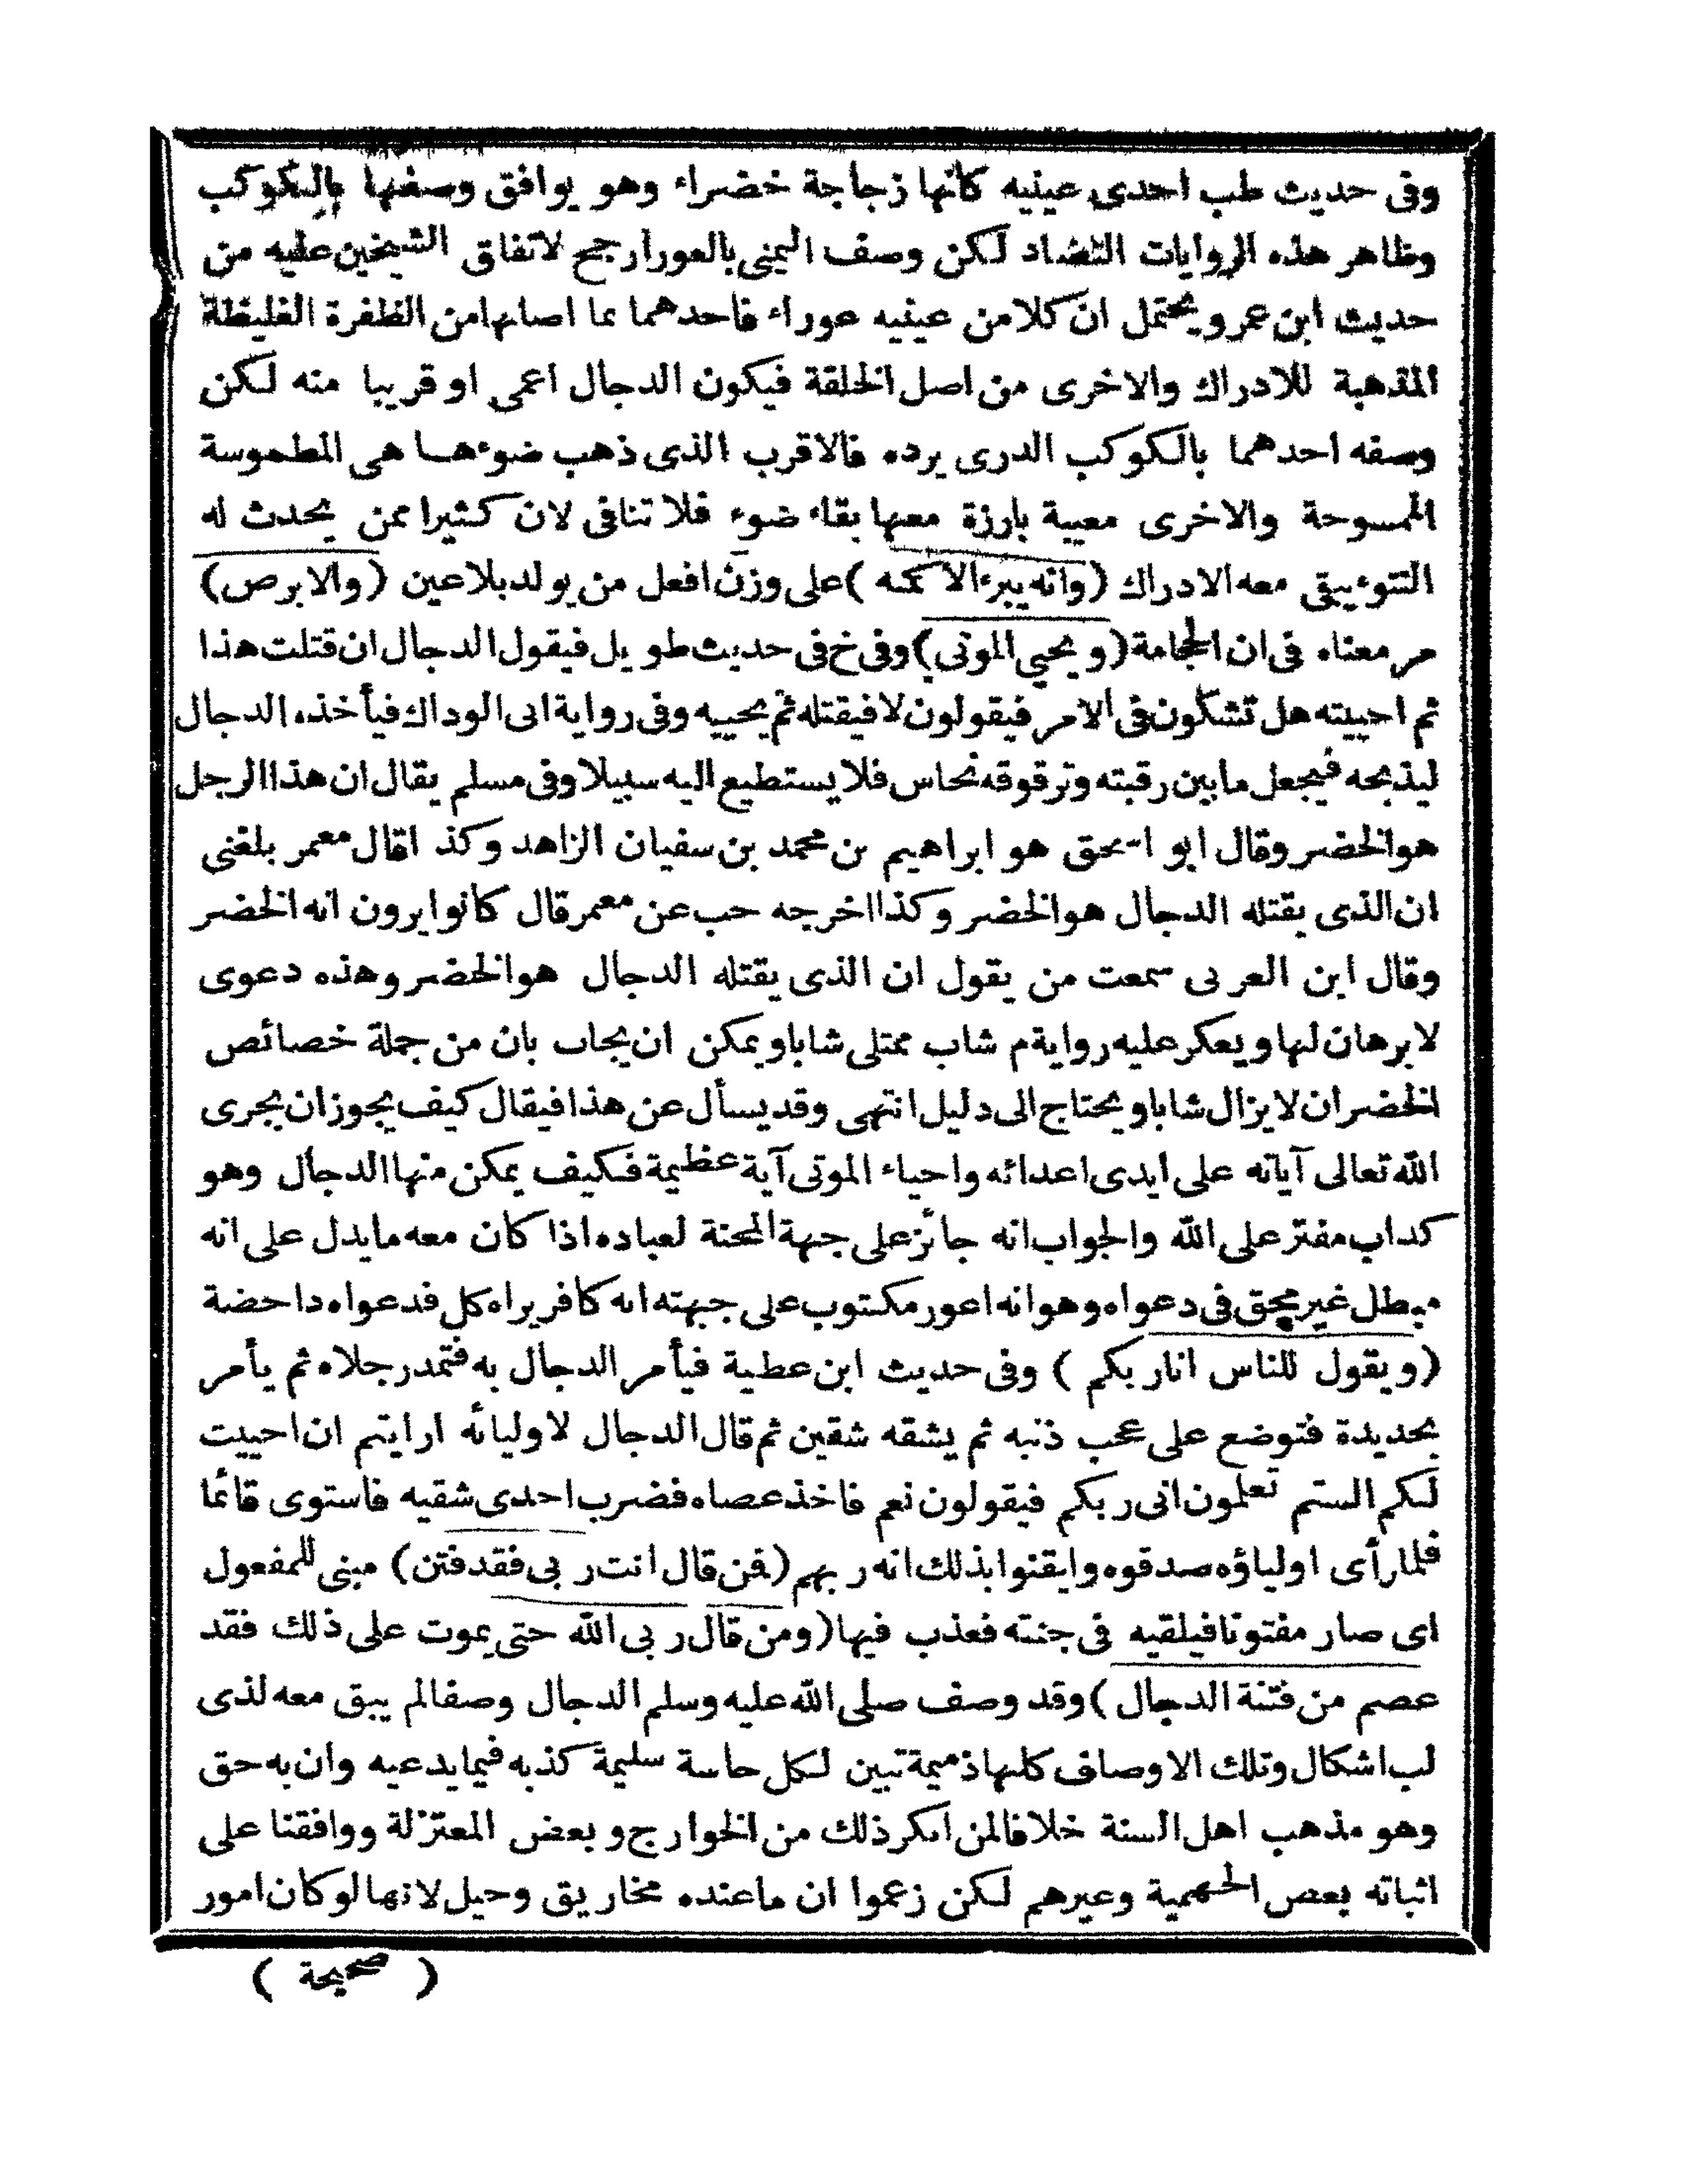 وفى حديث طب احدى عينيه كانها زجاجة خضراء وهو يوافق وصفها بالكوكب
وظاهر هذه الروايات التضاد لكن وصف اليمنى بالعور ارجح لاتفاق الشيخين عليه من
حديث ابن عمر ويحتمل ان كلا من عينيه عوراء فاحدهما بما اصابها من الظفرة الغليظة
المذهبة للادراك والاخرى من اصل الخلقة فيكون الدجال اعمى او قريبا منه لكن
وصفه احدهما بالكوكب الدرى يرده فالاقرب الذى ذهب ضوءها هى المطموسة
الممسوحة والاخرى معيبة بارزة معها بقاء ضوء فلا تنافى لان كثيرا ممن يحدث له
النتوء يبقى معه الادراك (وانه يبرء الاكمه) على وزن افعل من يولد بلا عين (والابرص)
مر معناه فى ان الحجامة (ويحيى الموتى) وفى خ فى حديث طويل فيقول الدجال ان قتلت هذا
ثم احييته هل تشكون فى الامر فيقولون لا فيقتله ثم يحييه وفى رواية ابى الوداك فيأخذه الدجال
ليذبحه فيجعل ما بين رقبته وترقوقه نحاس فلا يستطيع اليه سبيلا وفى مسلم يقال ان هذا الرجل
هو الخضر وقال ابو اسحق هو ابراهيم بن محمد بن سفيان الزاهد وكذا قال معمر بلغنى
ان الذى يقتله الدجال هو الخضر وكذا اخرجه حب عن معمر قال كانوا يرون انه الخضر
وقال ابن العربى سمعت من يقول ان الذى يقتله الدجال هو الخضر وهذه دعوى
لا برهان لها ويعكر عليه رواية م شاب ممتلى شابا ويمكن ان يجاب بان من جملة خصائص
الخضر ان لا يزال شابا ويحتاج الى دليل انتهى وقد يسأل عن هذا فيقال كيف يجوز ان يجرى
الله تعالى آياته على ايدى اعدائه واحياء الموتى آية عظيمة فكيف يمكن منها الدجال وهو
كداب مفتر على الله والجواب انه جائز على جهة المحنة لعباده اذا كان معه ما يدل على انه
مبطل غير محق فى دعواه وهو انه اعور مكتوب على جبهته انه كافر يراه كل فدعواه داحضة
(ويقول للناس انا ربكم) وفى حديث ابن عطية فيأمر الدجال به فتمد رجلاه ثم يأمر
بحديدة فتوضع على عجب ذنبه ثم يشقه شقين ثم قال الدجال لاوليائه ارايتم ان احييت
لكم الستم تعلمون انى ربكم فيقولون نعم فاخذ عصاه فضرب احدى شقيه فاستوى قائما
فلما رأى اولياؤه صدقوه وايقنوا بذلك انه ربهم (فمن قال انت ربى فقد فتن) مبنى للمفعول
اى صار مفتونا فيلقيه فى جنته فعذب فيها (ومن قال ربى الله حتى يموت على ذلك فقد
عصم من فتنة الدجال) وقد وصف صلى الله عليه وسلم الدجال وصفا لم يبق معه لذى
لب اشكال وتلك الاوصاف كلها ذميمة تبين لكل حاسة سليمة كذبه فيما يدعيه وان به حق
وهو مذهب اهل السنة خلافا لمن انكر ذلك من الخوارج وبعض المعتزلة ووافقنا على
اثباته بعض الجهمية وغيرهم لكن زعموا ان ما عنده مخاريق وحيل لانها لو كان امور
( صحيحة )